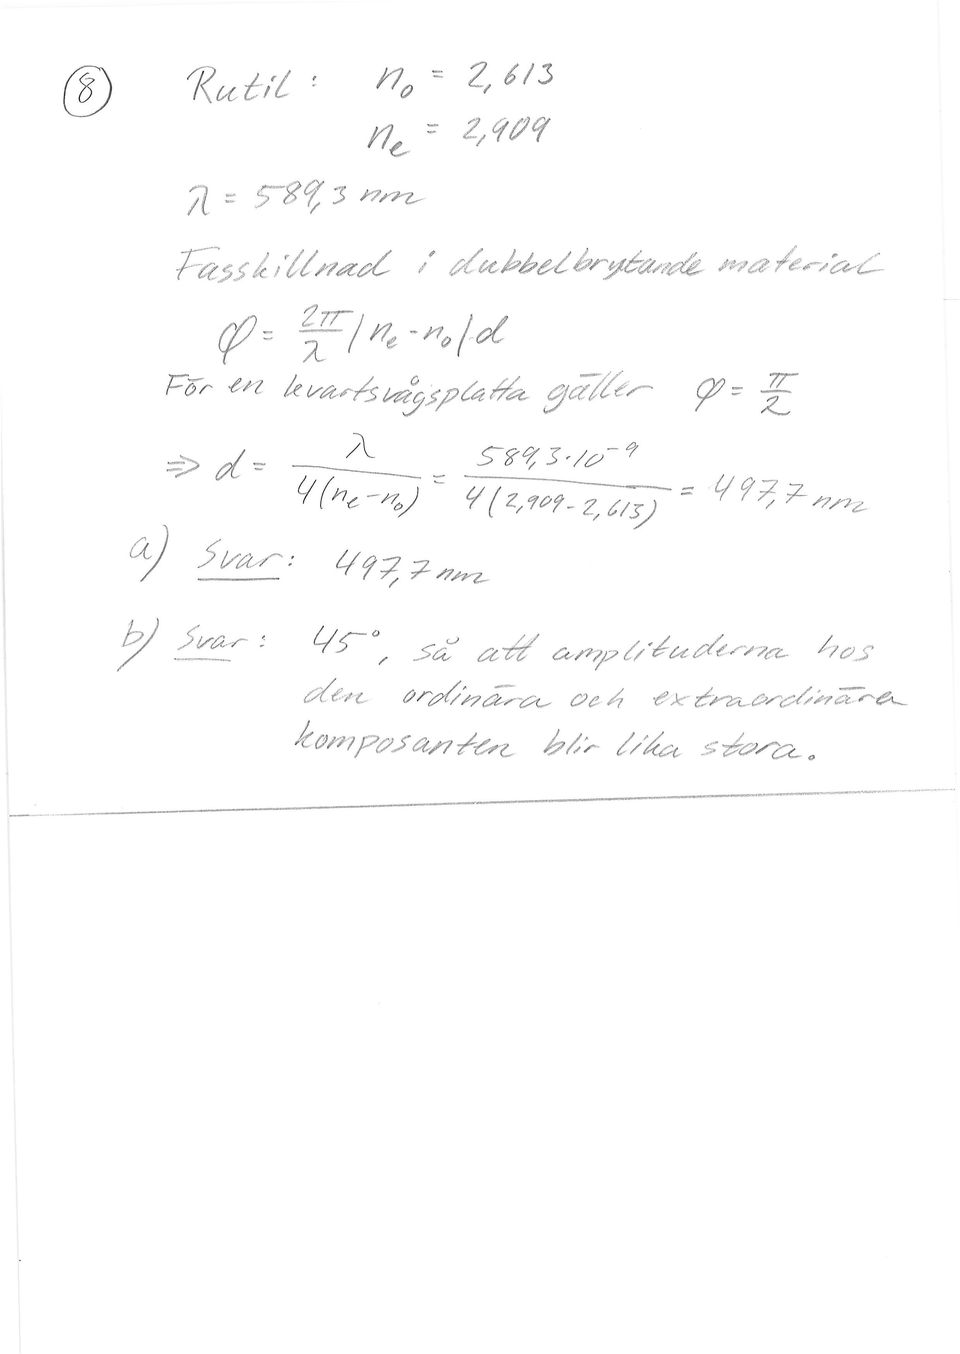 8 Rutil: n₀ = 2,613
nₑ = 2,909
λ = 589,3 nm
Fasskillnad i dubbelbrytande material
φ = 2π/λ |nₑ - n₀| d
För en kvartsvågsplatta gäller φ = π/2
=> d = λ / 4(nₑ - n₀) = 589,3·10⁻⁹ / 4(2,909 - 2,613) = 497,7 nm
a) Svar: 497,7 nm
b) Svar: 45°, så att amplituderna hos
den ordinära och extraordinära
komposanten blir lika stora.